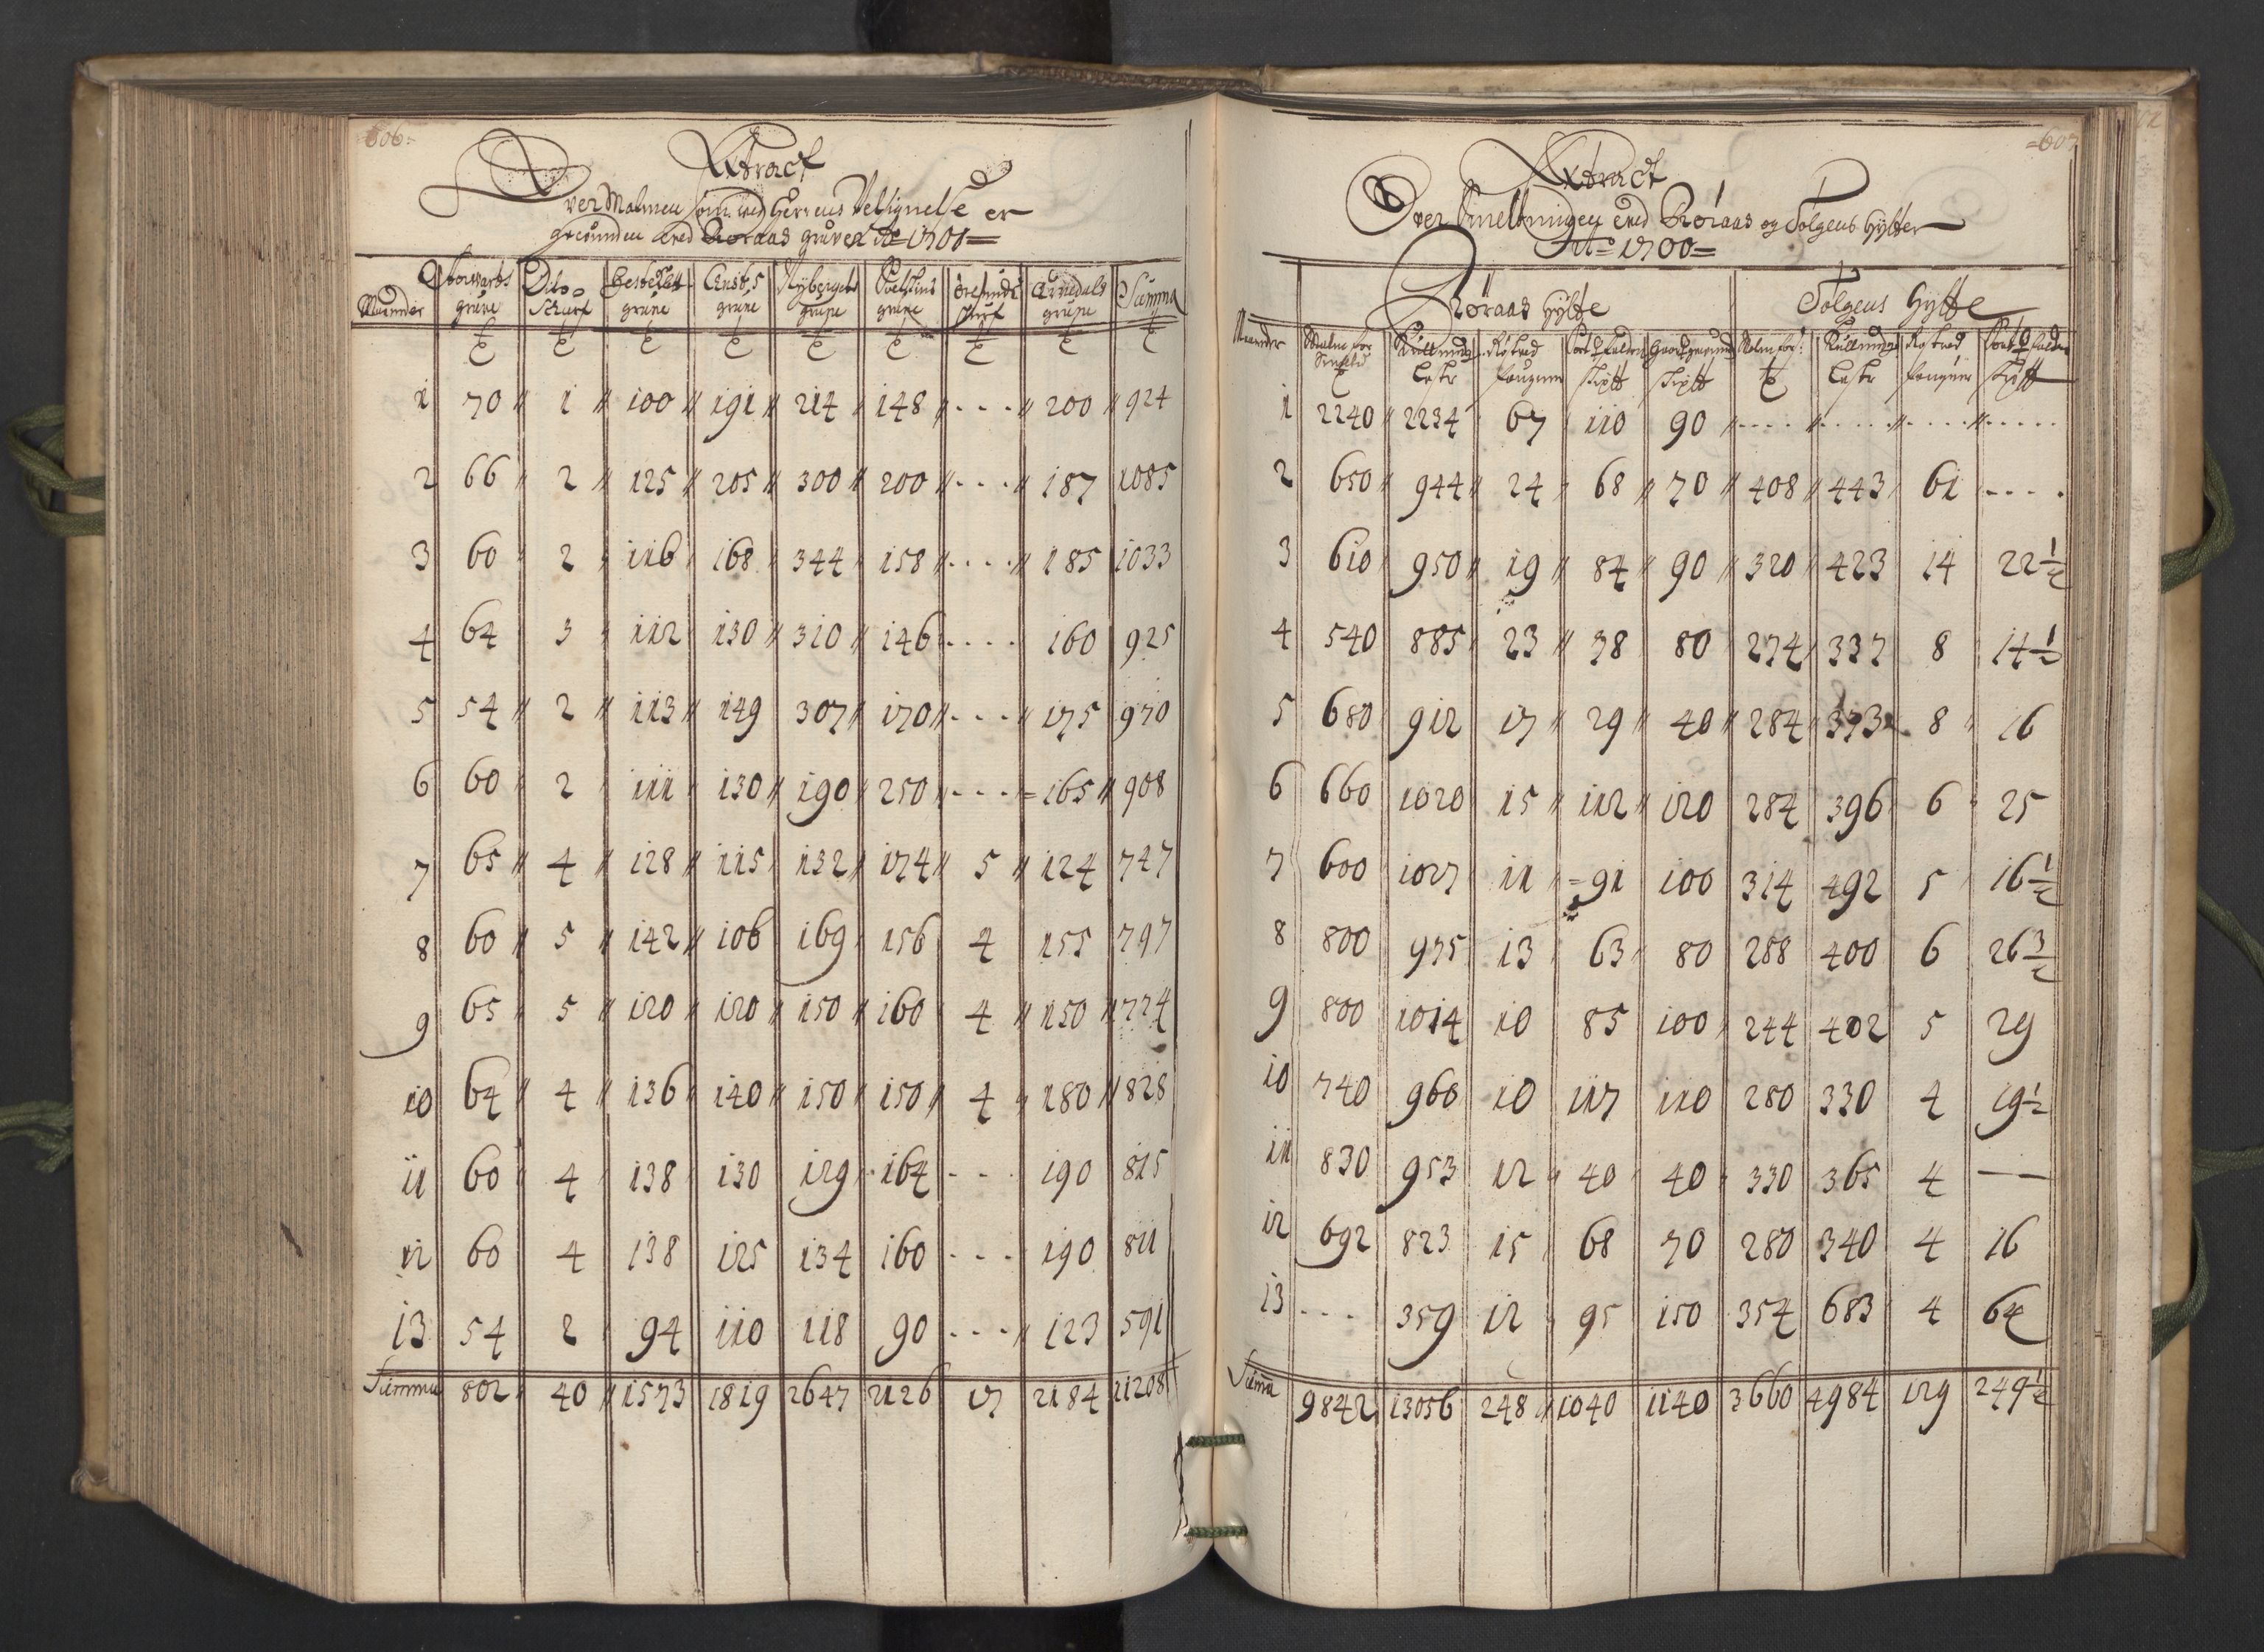 606.
Extract
Over Malmen som ved Herrens Velsignelse er
ved Røraas gruver Ao 1701
Maaneder Storvarts grube Dito Skurf grube Christ: 5 grube Nÿbergets grube grube skurf Arvedals grube Summa
1 70 1 100 191 214 148 .... 200 924
2 66 2 125 205 300 200 .... 187 1085
3 60 2 116 168 344 158 .... 185 1033
4 64 3 112 130 310 146 .... 160 925
5 54 2 113 149 307 170 .... 175 970
6 60 2 111 130 190 250 .... 165 908
7 65 4 128 115 132 174 5 124 747
8 60 5 142 106 169 156 4 155 797
9 65 5 120 120 150 160 4 150 774
10 64 4 136 140 150 150 4 180 828
11 60 4 138 130 129 164 ... 190 815
12 60 4 138 125 134 160 ... 190 811
13 54 2 94 110 118 90 ... 123 591
Summa 802 40 1573 1819 2647 2126 17 2184 11208
607
Extract
Over Smeltningen ved Røraas og Tolgens Hÿtter
Ao 1700
Røraas Hÿtte Tolgens Hÿtte
Maaneder Malm for Kullning Røstved Malm for: Kullning Røstved
Smeltid Lestr faugner skiptt skiptt Lestr faugner skiptt
1 2240 2234 67 110 90 .... .... .... ....
2 650 944 24 68 70 408 443 61 ....
3 610 950 19 84 90 320 423 14 22 1/2
4 540 885 23 78 80 274 337 8 14 1/2
5 680 912 17 29 40 284 373 8 16
6 660 1020 15 112 120 284 396 6 25
7 600 1027 11 91 100 314 492 5 16 1/2
8 800 975 13 63 80 288 400 6 26 3/2
9 800 1014 10 85 100 244 402 5 29
10 740 960 10 117 110 280 330 4 19 1/2
11 830 953 12 40 40 330 365 4 —
12 692 823 15 68 70 280 340 4 16
13 ... 359 12 95 150 354 683 4 64
Suma 9842 13056 248 1040 1140 3660 4984 129 249 1/2